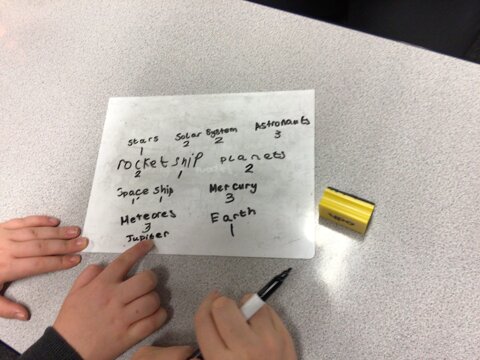 stars solar system Astronauts
1 2 2 3
rocket ship planets
2 1 2
Space ship Mercury
1 1 3
Meteores Earth
3 1
Jupiter